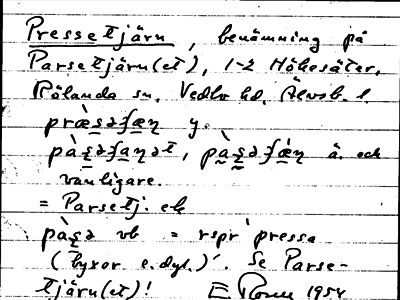 Pressetjärn, benämning på
Parsetjärn(et), 1-2 Höbesäter,
Rölanda sn, Vedbo hd, Älvsb. l.
præ̀sǝʃæn y.
pàʂǝʃanǝt, pàʂǝʃæ̀n ä. och
vanligare.
= Parsetj. etc
pàʂǝ vb = rspr pressa
(byxor e.dyl.)'. Se Parse-
tjärn(et)! 1954